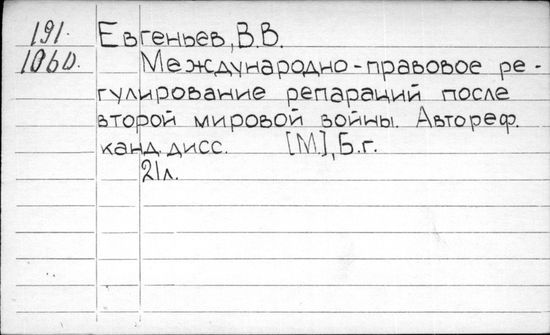 191.
1060.
Евгеньев, В.В.
Международно-правовое ре-
гулирование репараций после
второй мировой войны. Автореф.
канд. дисс. [М.], Б.г.
21л.